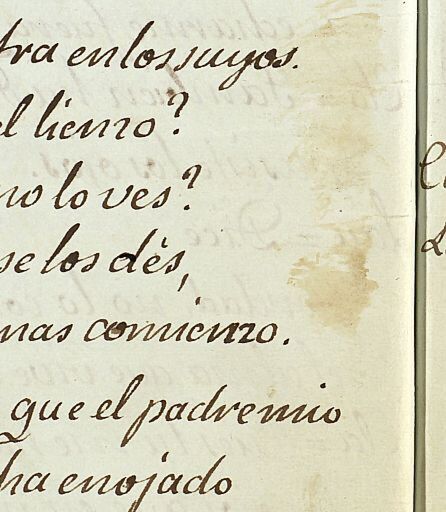 tra en los suyos.
el lienzo?
no lo ves?
se los dés,
nas comienzo.
que el padre mio
ha enojado